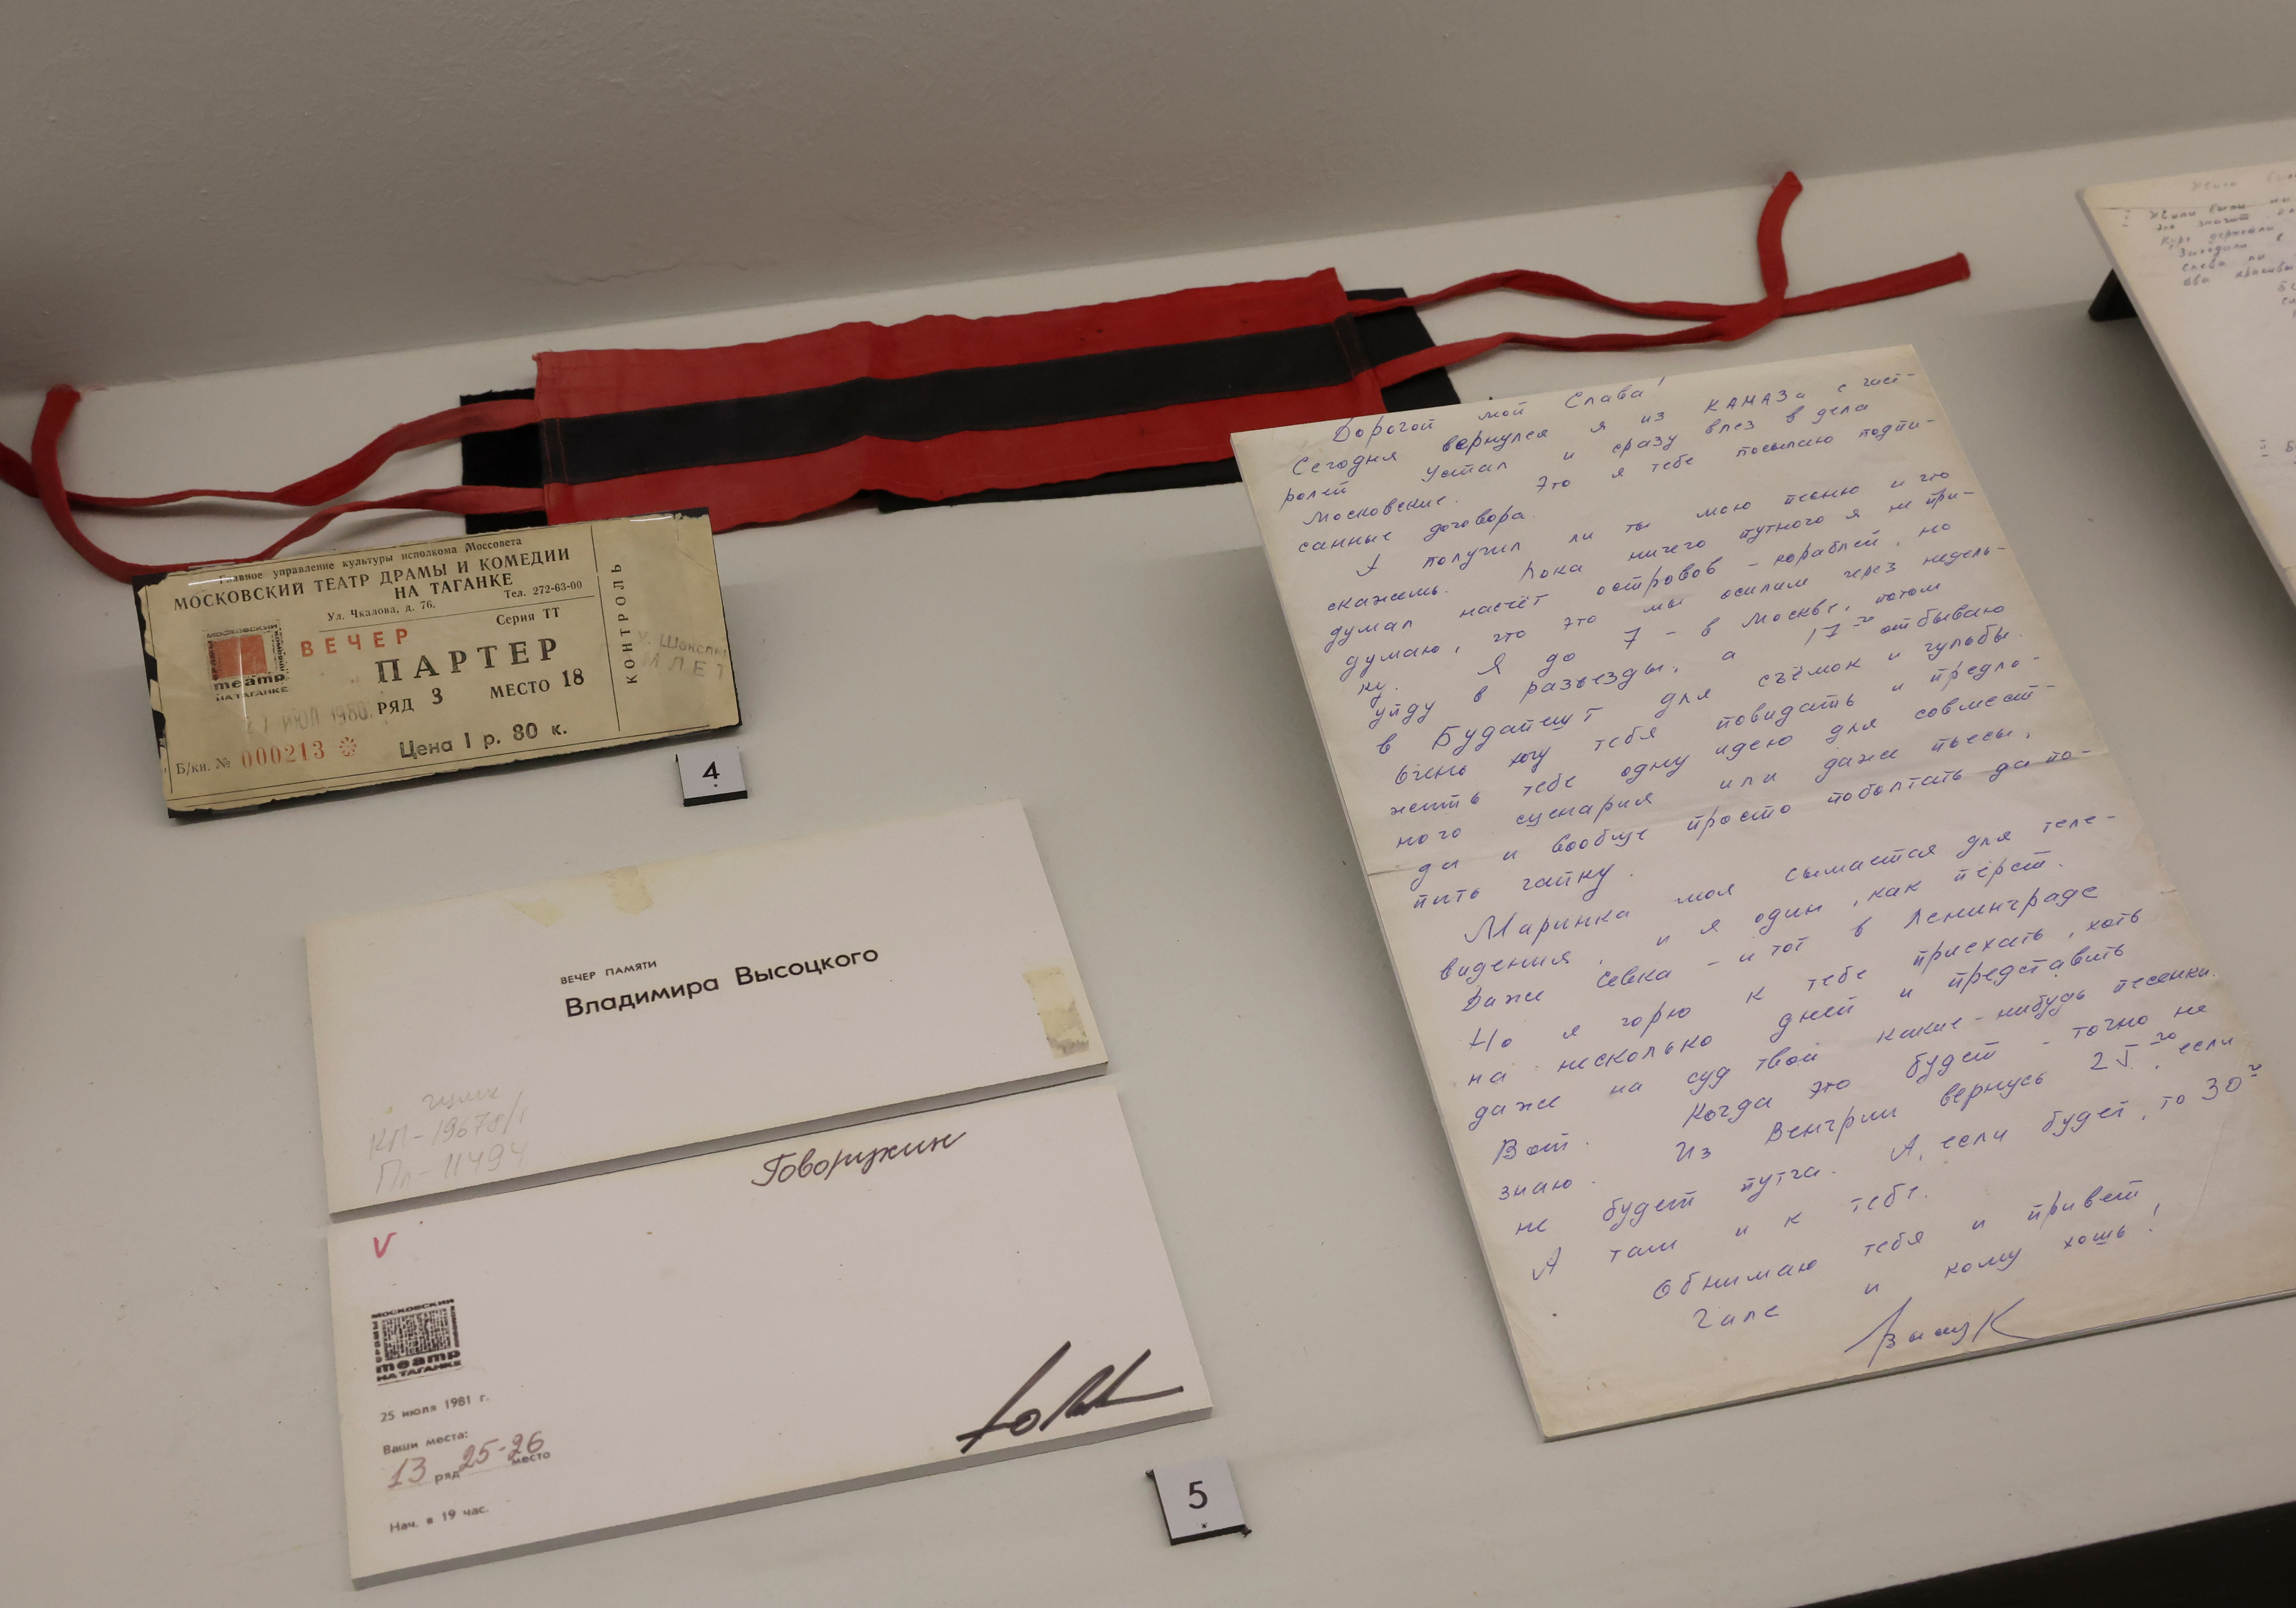 Главное управление культуры исполкома Моссовета
МОСКОВСКИЙ ТЕАТР ДРАМЫ И КОМЕДИИ
НА ТАГАНКЕ
Ул. Чкалова, д. 76.
Тел. 272-63-00
Серия ТТ
МОСКОВСКИЙ
ДРАМЫ И
КОМЕДИИ
театр
НА ТАГАНКЕ
ВЕЧЕР
ПАРТЕР
РЯД 3 МЕСТО 18
ИЮЛ 1980
Б/кн. № 000213
Цена 1 р. 80 к.
КОНТРОЛЬ
У. Шекспир
МЛЕТ
4
ВЕЧЕР ПАМЯТИ
Владимира Высоцкого
ГЦММ
КП-19678/1
Пл-11494
Говорухин
V
МОСКОВСКИЙ
ДРАМЫ И
театр
НА ТАГАНКЕ
25 июля 1981 г.
Ваши места:
13 ряд 25-26 место
Нач. в 19 час.
5
Дорогой мой Слава!
Сегодня вернулся я из КАМАЗа с гаст-
ролей. Устал и сразу влез в дела
Московские. Это я тебе посылаю подпи-
санные договора.
А получил ли ты мою песню и что
скажешь. Пока ничего путного я не при-
думал насчёт островов - кораблей, но
думаю, что это мы осилим через недель-
ку. Я до 7 - в Москве, потом
уйду в разъезды, а 17го отбываю
в Будапешт для съёмок и гульбы.
Очень хочу тебя повидать и предло-
жить тебе одну идею для совмест-
ного сценария или даже пьесы,
да и вообще просто поболтать да по-
пить чайку.
Маринка моя сымается для теле-
видения, и я один, как перст.
Даже Севка - и тот в Ленинграде
Но я горю к тебе приехать, хоть
на несколько дней и представить
даже на суд твой какие-нибудь песенки.
Вот. Когда это будет - точно не
знаю. Из Венгрии вернусь 25го, если
не будет путча. А, если будет, то 30го
А там и к тебе.
Обнимаю тебя и привет
Гале и кому хошь!
ВысоцК